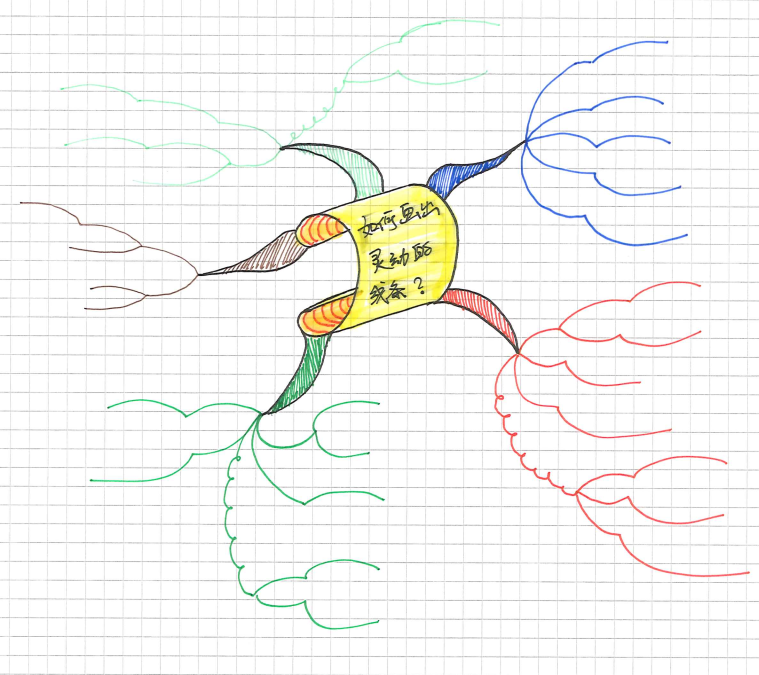 如何画出
灵动的
线条？